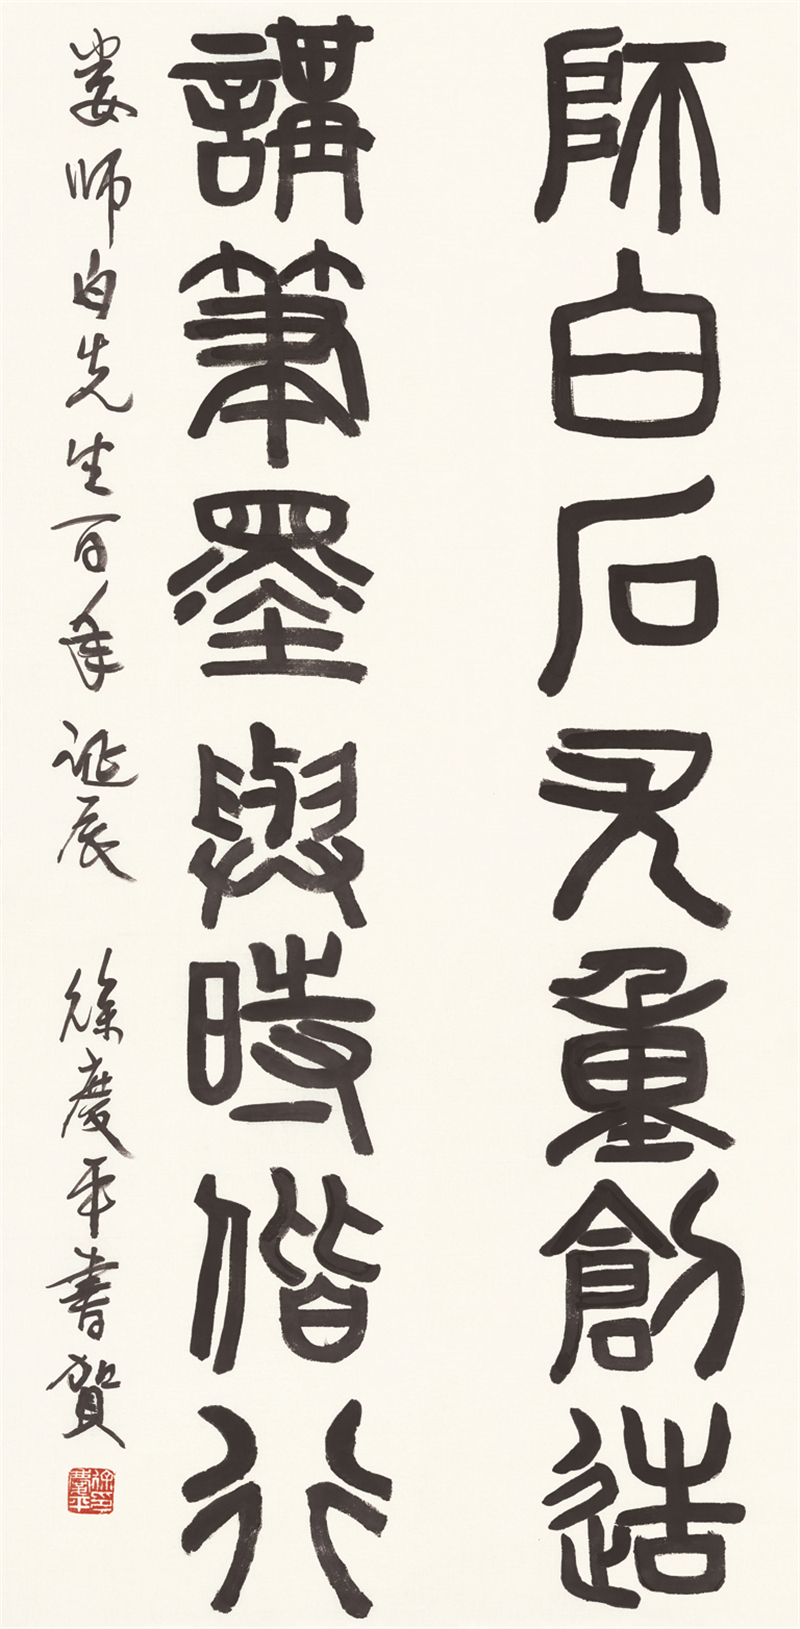 師白石尤重創造
講筆墨與時偕行
娄师白先生百年诞辰 徐慶平書賀